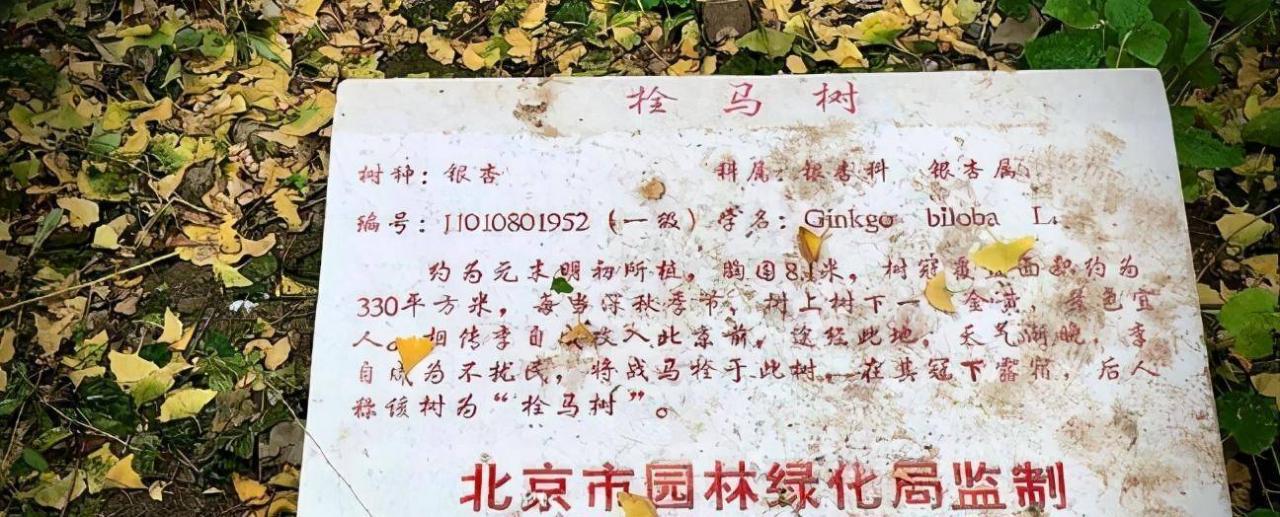 拴马树
树种：银杏 科属：银杏科 银杏属
编号：11010801952（一级）学名：Ginkgo biloba L.
约为元末明初所植，胸围8.1米，树冠覆 面积约为
330平方米，每当深秋季节，树上树下一 金黄，景色宜
人。相传李自成攻入北京前，途经此地，天气渐晚，李
自成为不扰民，将战马拴于此树，在其冠下露宿，后人
称该树为“拴马树”。
北京市园林绿化局监制